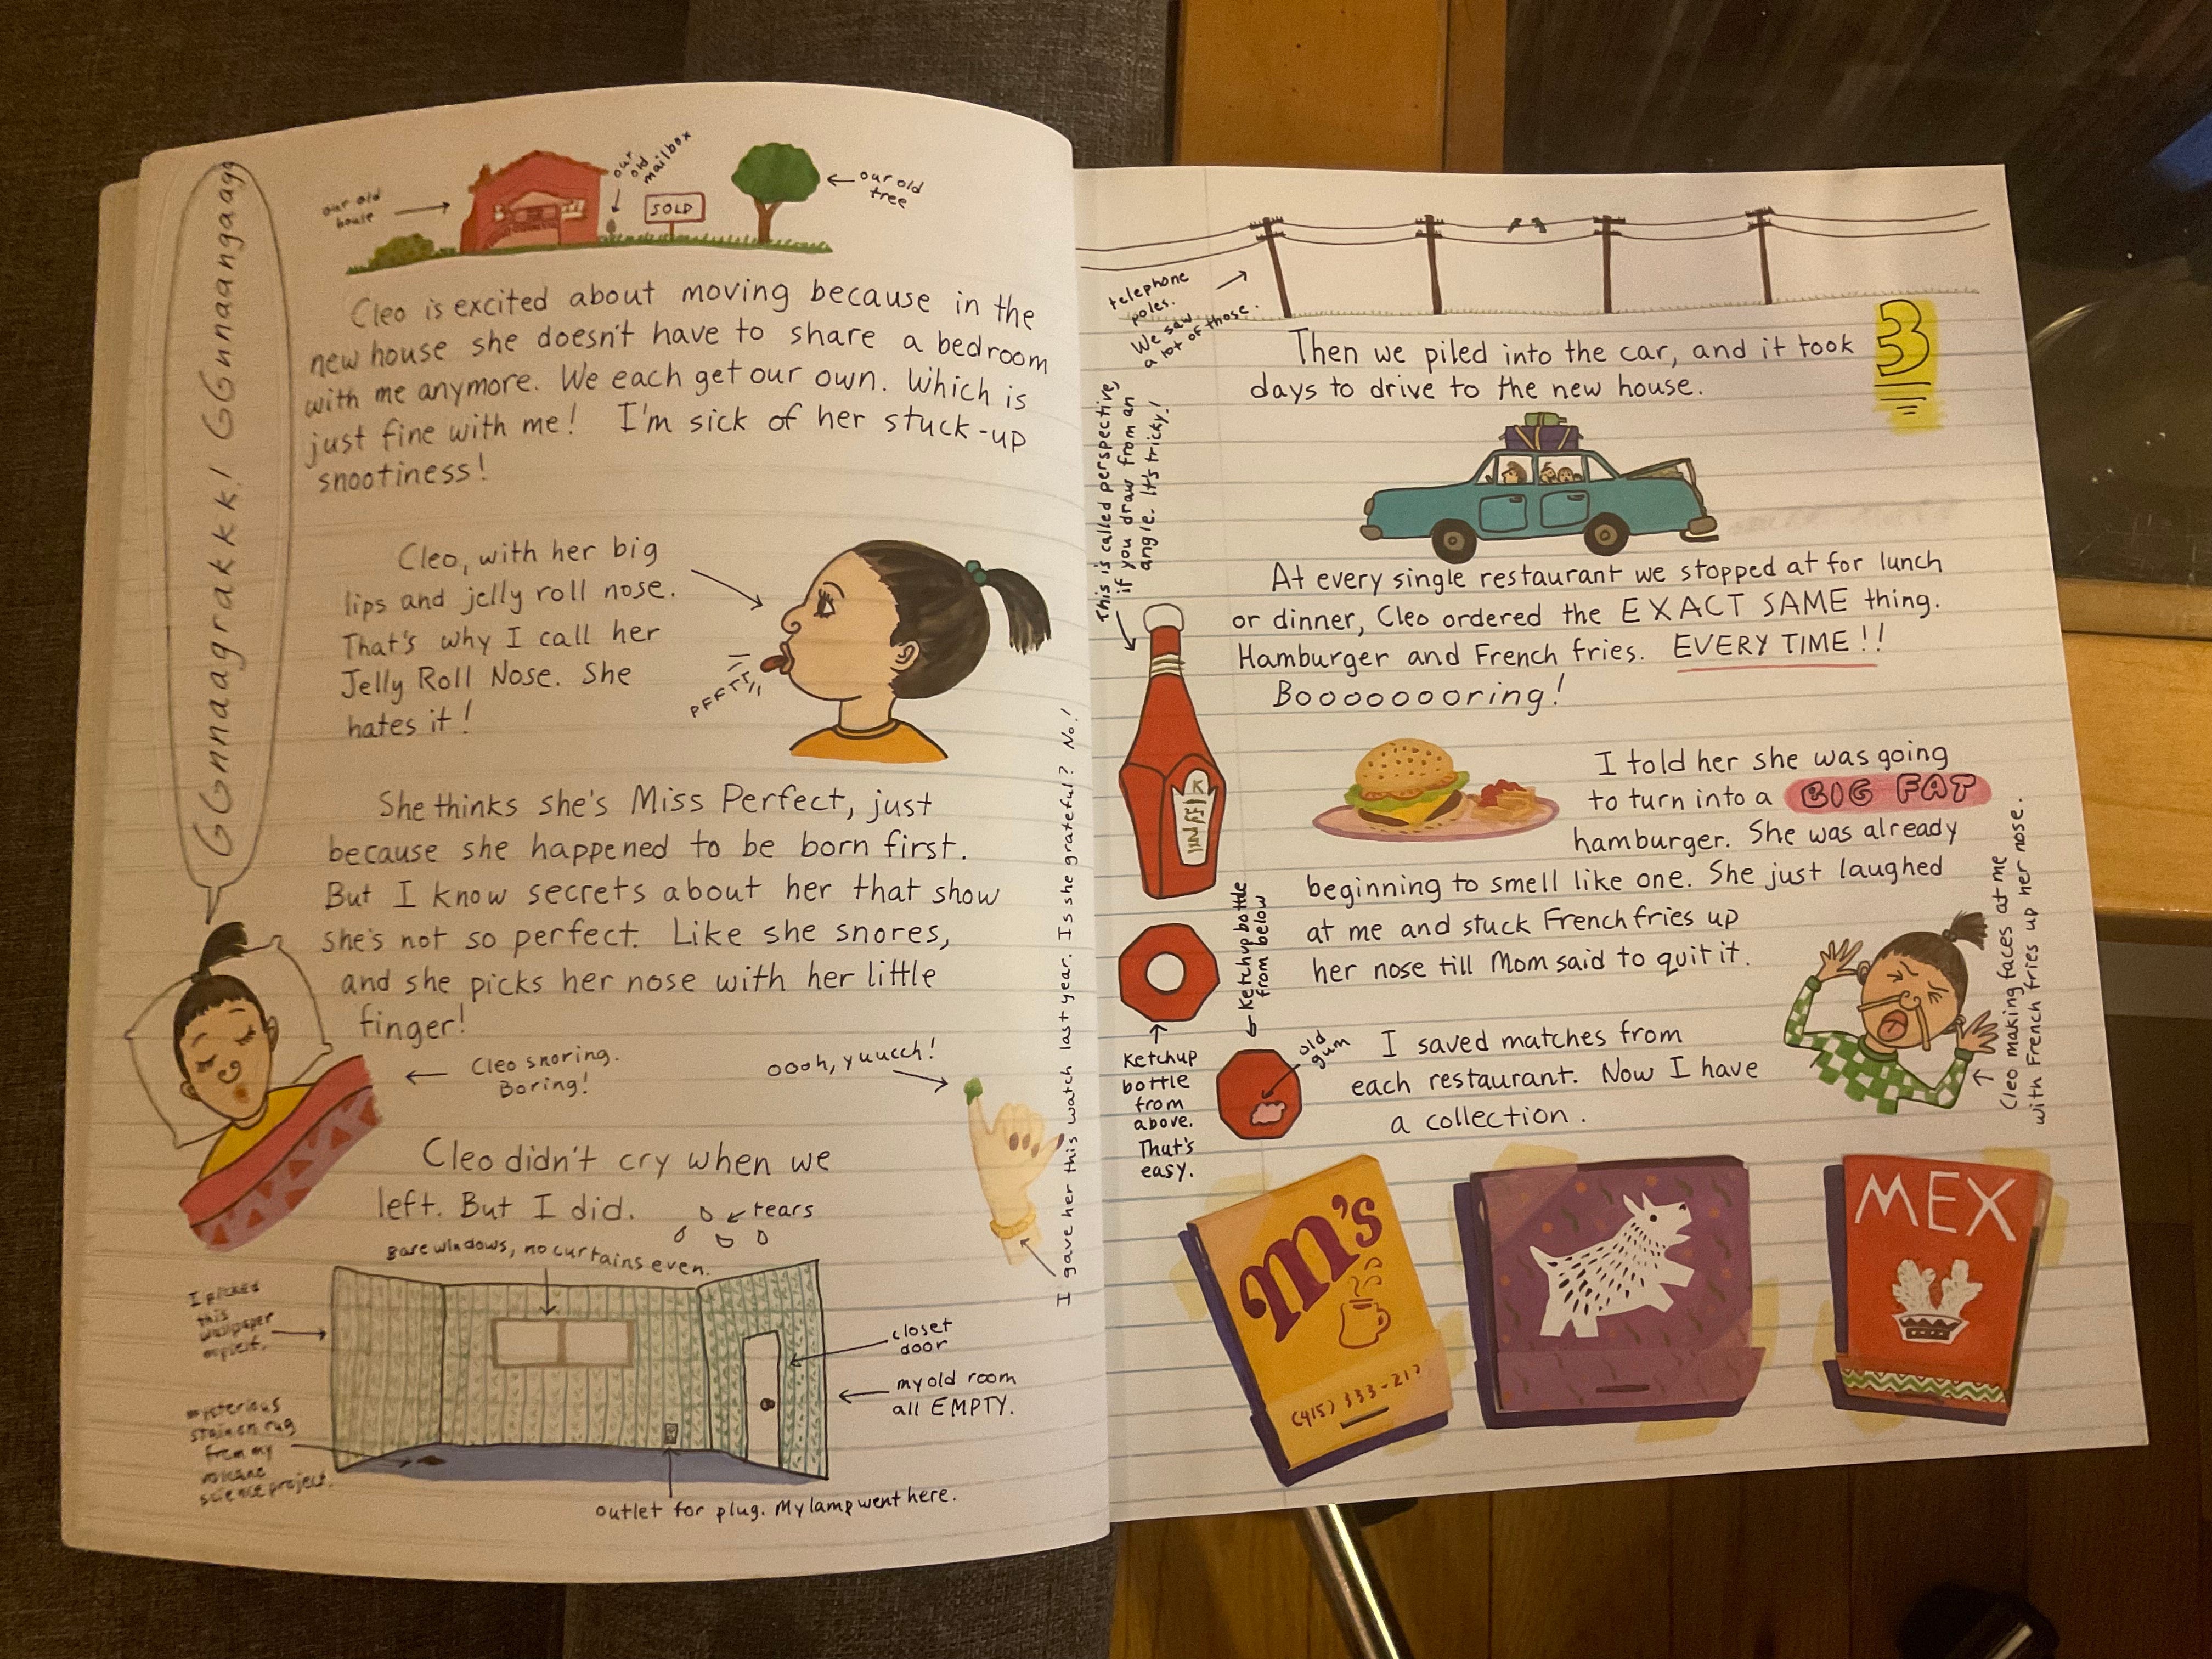 GGnnaagrakkk! GGnnaangaagg
our old
house
our
old
mailbox
SOLD
our old
tree
Cleo is excited about moving because in the
new house she doesn't have to share a bedroom
with me anymore. We each get our own. Which is
just fine with me! I'm sick of her stuck-up
snootiness!
Cleo, with her big
lips and jelly roll nose.
That's why I call her
Jelly Roll Nose. She
hates it!
PFFTT
She thinks she's Miss Perfect, just
because she happened to be born first.
But I know secrets about her that show
she's not so perfect. Like she snores,
and she picks her nose with her little
finger!
Cleo snoring.
Boring!
oooh, yuucch!
I gave her this watch last year. Is she grateful? No!
Cleo didn't cry when we
left. But I did.
tears
Bare windows, no curtains even.
I picked
this
wallpaper
myself.
closet
door
my old room
all EMPTY.
mysterious
stain on rug
from my
volcano
science project.
outlet for plug. My lamp went here.
telephone
poles.
We saw
a lot of those.
Then we piled into the car, and it took 3
days to drive to the new house.
This is called perspective,
if you draw from an
angle. It's tricky!
At every single restaurant we stopped at for lunch
or dinner, Cleo ordered the EXACT SAME thing.
Hamburger and French fries. EVERY TIME!!
Boooooooring!
I told her she was going
to turn into a BIG FAT
hamburger. She was already
beginning to smell like one. She just laughed
at me and stuck French fries up
her nose till Mom said to quit it.
Ketchup bottle
from below
old
gum
Ketchup
bottle
from
above.
That's
easy.
Cleo making faces at me
with French fries up her nose.
I saved matches from
each restaurant. Now I have
a collection.
M's
(415) 333-217
MEX